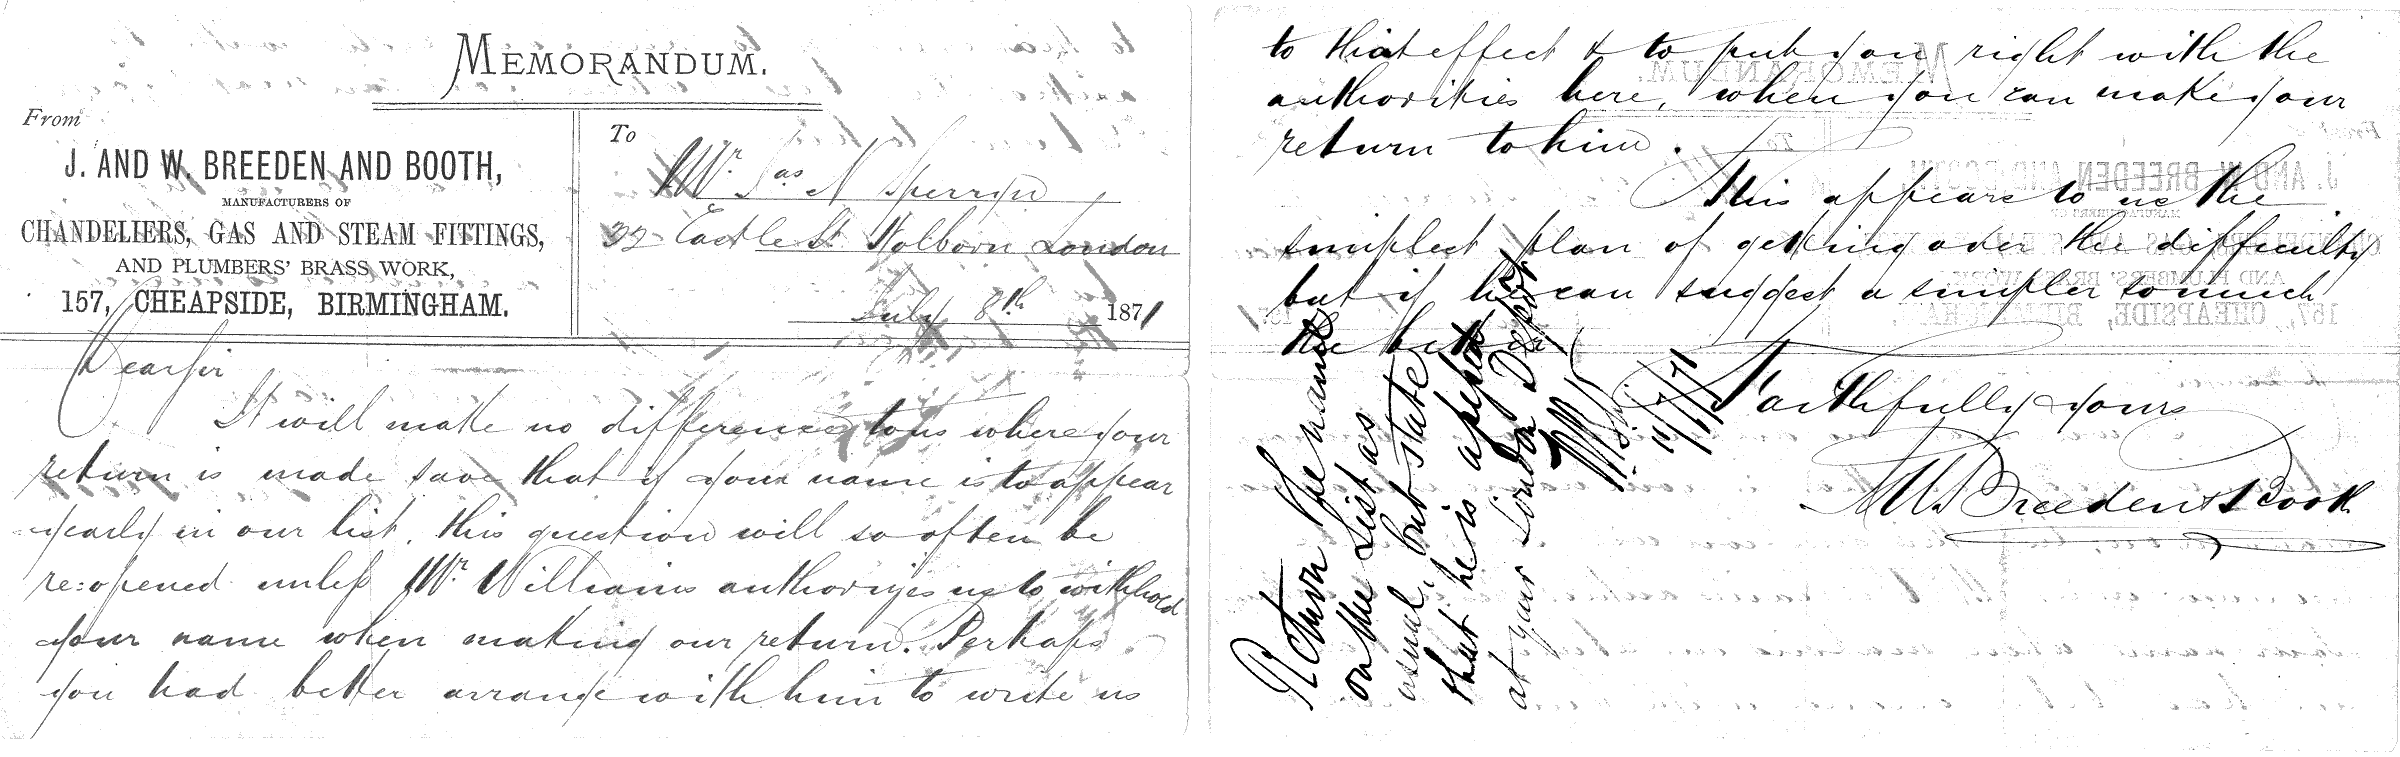 MEMORANDUM.
From
J. AND W. BREEDEN AND BOOTH,
MANUFACTURERS OF
CHANDELIERS, GAS AND STEAM FITTINGS,
AND PLUMBERS' BRASS WORK,
157, CHEAPSIDE, BIRMINGHAM.
To
Mr. Jas N Sperryn
32 Castle St Holborn London
July 8th 1871
Dear Sir
It will make no difference to us where your
return is made save that if your name is to appear
yearly in our list, this question will so often be
re:opened unless Mr. Williams authorizes us to withhold
your name when making our return. Perhaps
you had better arrange with him to write us
to that effect & to put you right with the
authorities here, when you can make your
return to him.
This appears to us the
simplest plan of getting over the difficulty
but if he can suggest a simpler so much
the better
Faithfully yours
J&W. Breeden & Booth
Return the name
on the List as
usual, but state
that he is apptd
at your London Depot
11/7/71